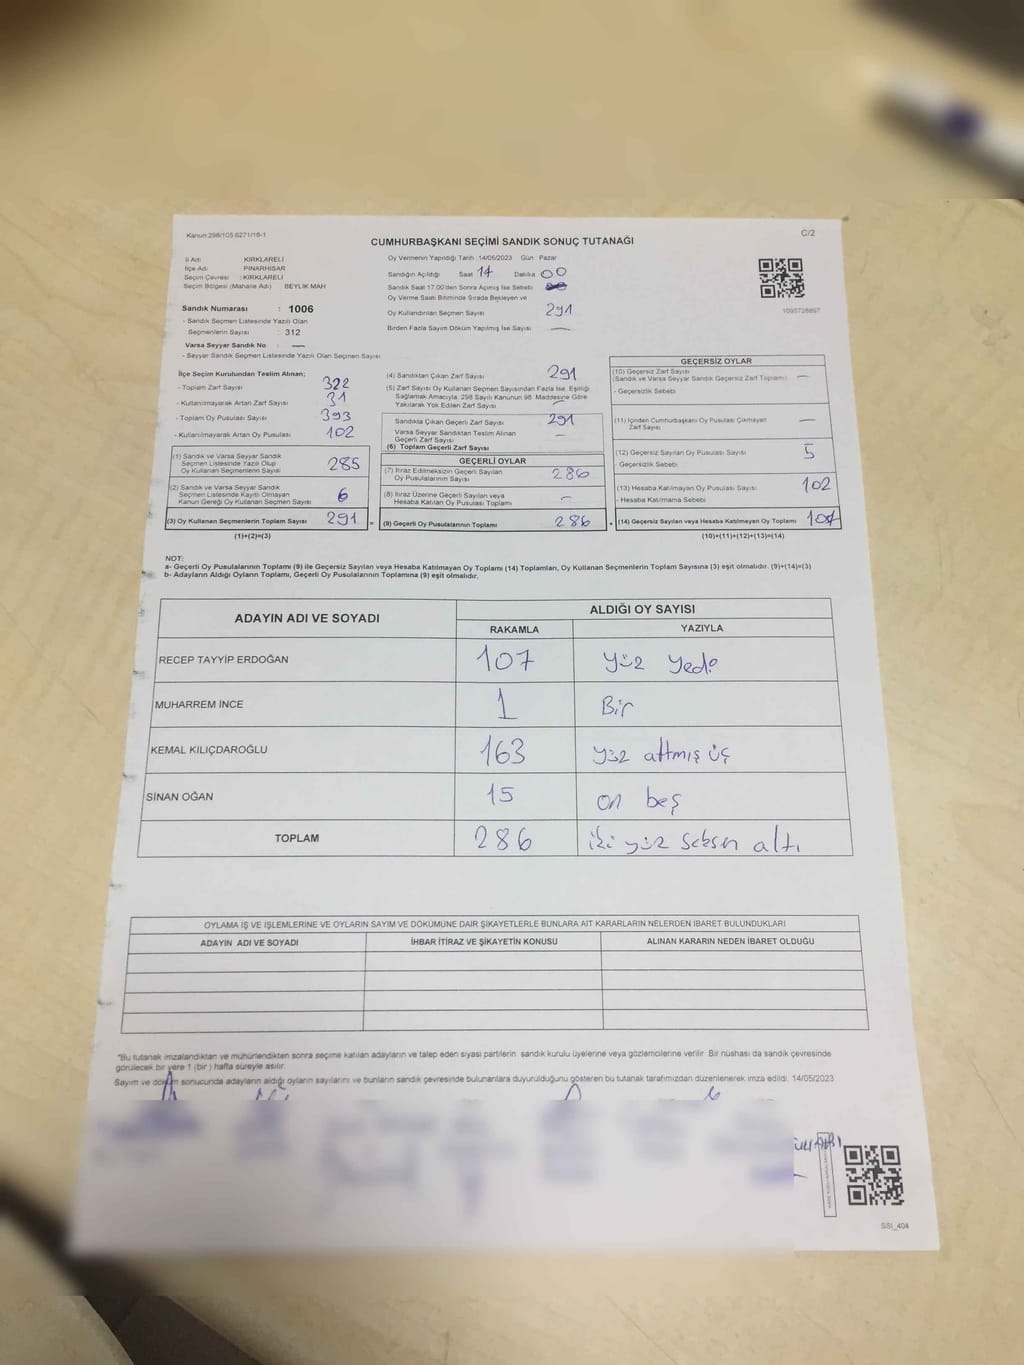 Kanun:298/105,6271/16-1
C/2
CUMHURBAŞKANI SEÇİMİ SANDIK SONUÇ TUTANAĞI
İl Adı : KIRKLARELİ
İlçe Adı : PINARHİSAR
Seçim Çevresi : KIRKLARELİ
Seçim Bölgesi (Mahalle Adı) : BEYLİK MAH
Sandık Numarası : 1006
- Sandık Seçmen Listesinde Yazılı Olan
Seçmenlerin Sayısı : 312
Varsa Seyyar Sandık No : —
- Seyyar Sandık Seçmen Listesinde Yazılı Olan Seçmen Sayısı
Oy Vermenin Yapıldığı Tarih :14/05/2023 Gün Pazar
Sandığın Açıldığı Saat 14 Dakika 00
Sandık Saat 17.00'den Sonra Açılmış İse Sebebi
Oy Verme Saati Bitiminde Sırada Bekleyen ve
Oy Kullandırılan Seçmen Sayısı 291
Birden Fazla Sayım Döküm Yapılmış İse Sayısı —
1093726897
İlçe Seçim Kurulundan Teslim Alınan;
- Toplam Zarf Sayısı 322
- Kullanılmayarak Artan Zarf Sayısı 31
- Toplam Oy Pusulası Sayısı 393
- Kullanılmayarak Artan Oy Pusulası 102
(1) Sandık ve Varsa Seyyar Sandık
Seçmen Listesinde Yazılı Olup
Oy Kullanan Seçmenlerin Sayısı 285
(2) Sandık ve Varsa Seyyar Sandık
Seçmen Listesinde Kayıtlı Olmayan
Kanun Gereği Oy Kullanan Seçmen Sayısı 6
(3) Oy Kullanan Seçmenlerin Toplam Sayısı 291 =
(1)+(2)=(3)
(4) Sandıktan Çıkan Zarf Sayısı 291
(5) Zarf Sayısı Oy Kullanan Seçmen Sayısından Fazla İse, Eşitliği
Sağlamak Amacıyla, 298 Sayılı Kanunun 98. Maddesine Göre
Yakılarak Yok Edilen Zarf Sayısı —
Sandıkta Çıkan Geçerli Zarf Sayısı 291
Varsa Seyyar Sandıktan Teslim Alınan
Geçerli Zarf Sayısı —
(6) Toplam Geçerli Zarf Sayısı
GEÇERLİ OYLAR
(7) İtiraz Edilmeksizin Geçerli Sayılan
Oy Pusulasının Sayısı 286
(8) İtiraz Üzerine Geçerli Sayılan veya
Hesaba Katılan Oy Pusulası Toplamı —
(9) Geçerli Oy Pusulalarının Toplamı 286 +
GEÇERSİZ OYLAR
(10) Geçersiz Zarf Sayısı
(Sandık ve Varsa Seyyar Sandık Geçersiz Zarf Toplamı) —
- Geçersizlik Sebebi
(11) İçinden Cumhurbaşkanı Oy Pusulası Çıkmayan
Zarf Sayısı —
(12) Geçersiz Sayılan Oy Pusulası Sayısı 5
- Geçersizlik Sebebi:
(13) Hesaba Katılmayan Oy Pusulası Sayısı 102
- Hesaba Katılmama Sebebi
(14) Geçersiz Sayılan veya Hesaba Katılmayan Oy Toplamı 107
(10)+(11)+(12)+(13)=(14)
NOT:
a- Geçerli Oy Pusulalarının Toplamı (9) ile Geçersiz Sayılan veya Hesaba Katılmayan Oy Toplamı (14) Toplamları, Oy Kullanan Seçmenlerin Toplam Sayısına (3) eşit olmalıdır. (9)+(14)=(3)
b- Adayların Aldığı Oyların Toplamı, Geçerli Oy Pusulalarının Toplamına (9) eşit olmalıdır.
ADAYIN ADI VE SOYADI ALDIĞI OY SAYISI
RAKAMLA YAZIYLA
RECEP TAYYİP ERDOĞAN 107 yüz yedi
MUHARREM İNCE 1 Bir
KEMAL KILIÇDAROĞLU 163 yüz altmış üç
SİNAN OĞAN 15 on beş
TOPLAM 286 iki yüz seksen altı
OYLAMA İŞ VE İŞLEMLERİNE VE OYLARIN SAYIM VE DÖKÜMÜNE DAİR ŞİKAYETLERLE BUNLARA AİT KARARLARIN NELERDEN İBARET BULUNDUKLARI
ADAYIN ADI VE SOYADI İHBAR İTİRAZ VE ŞİKAYETİN KONUSU ALINAN KARARIN NEDEN İBARET OLDUĞU
"Bu tutanak imzalandıktan ve mühürlendikten sonra seçime katılan adayların ve talep eden siyasi partilerin sandık kurulu üyelerine veya gözlemcilerine verilir. Bir nüshası da sandık çevresinde
görülecek bir yere 1 (bir) hafta süreyle asılır.
Sayım ve döküm sonucunda adayların aldığı oyların sayılarını ve bunların sandık çevresinde bulunanlara duyurulduğunu gösteren bu tutanak tarafımızdan düzenlenerek imza edildi. 14/05/2023
SSI_404